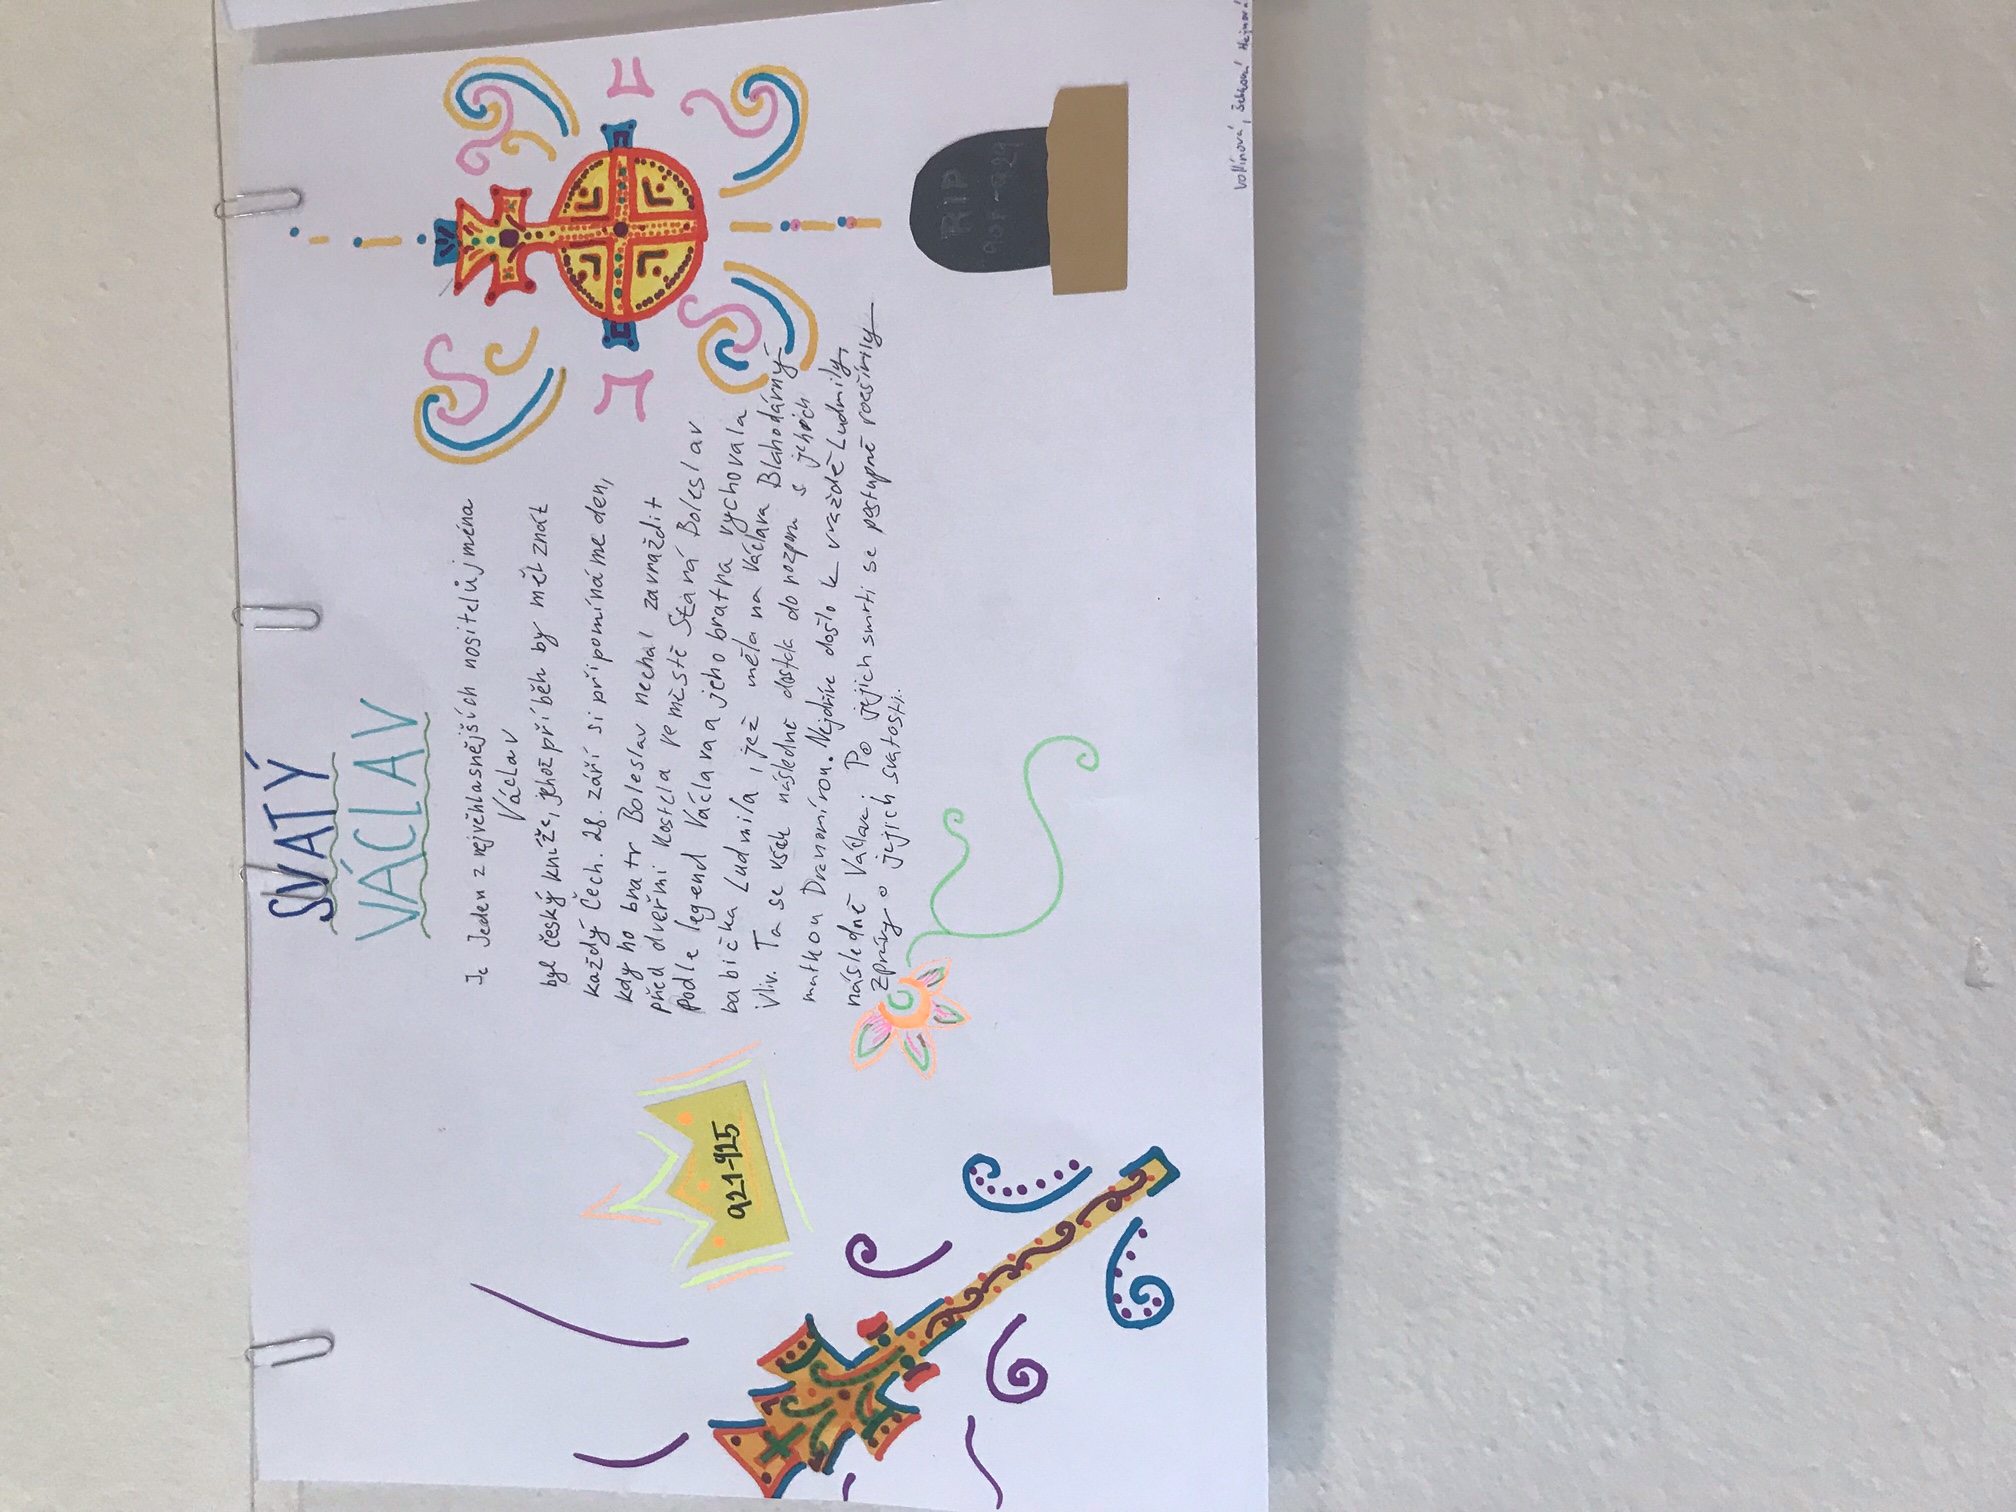 SVATÝ
VÁCLAV
Je Jeden z nejvěhlasnějších nositelůj ména
Václav
byl český kníže, jehož příběh by měl znát
každý Čech. 28. září si připomínáme den,
kdy ho bratr Boleslav nechal zavraždit
před dveřmi kostela ve městě Stará Boleslav
Podle legend Václava a jeho bratra vychovala
babička Ludmila, jež měla na Václava Blahodárný
vliv. Ta se však následně dostala do rozporu s jehoich
matkou Drahomírou. Nejdříve došlo k vraždě Ludmily,
následně Václav. Po jejich smrti se postupně rozšířily
zprávy o jejich svatosti.
921-935
RIP
907-929
Hejnová